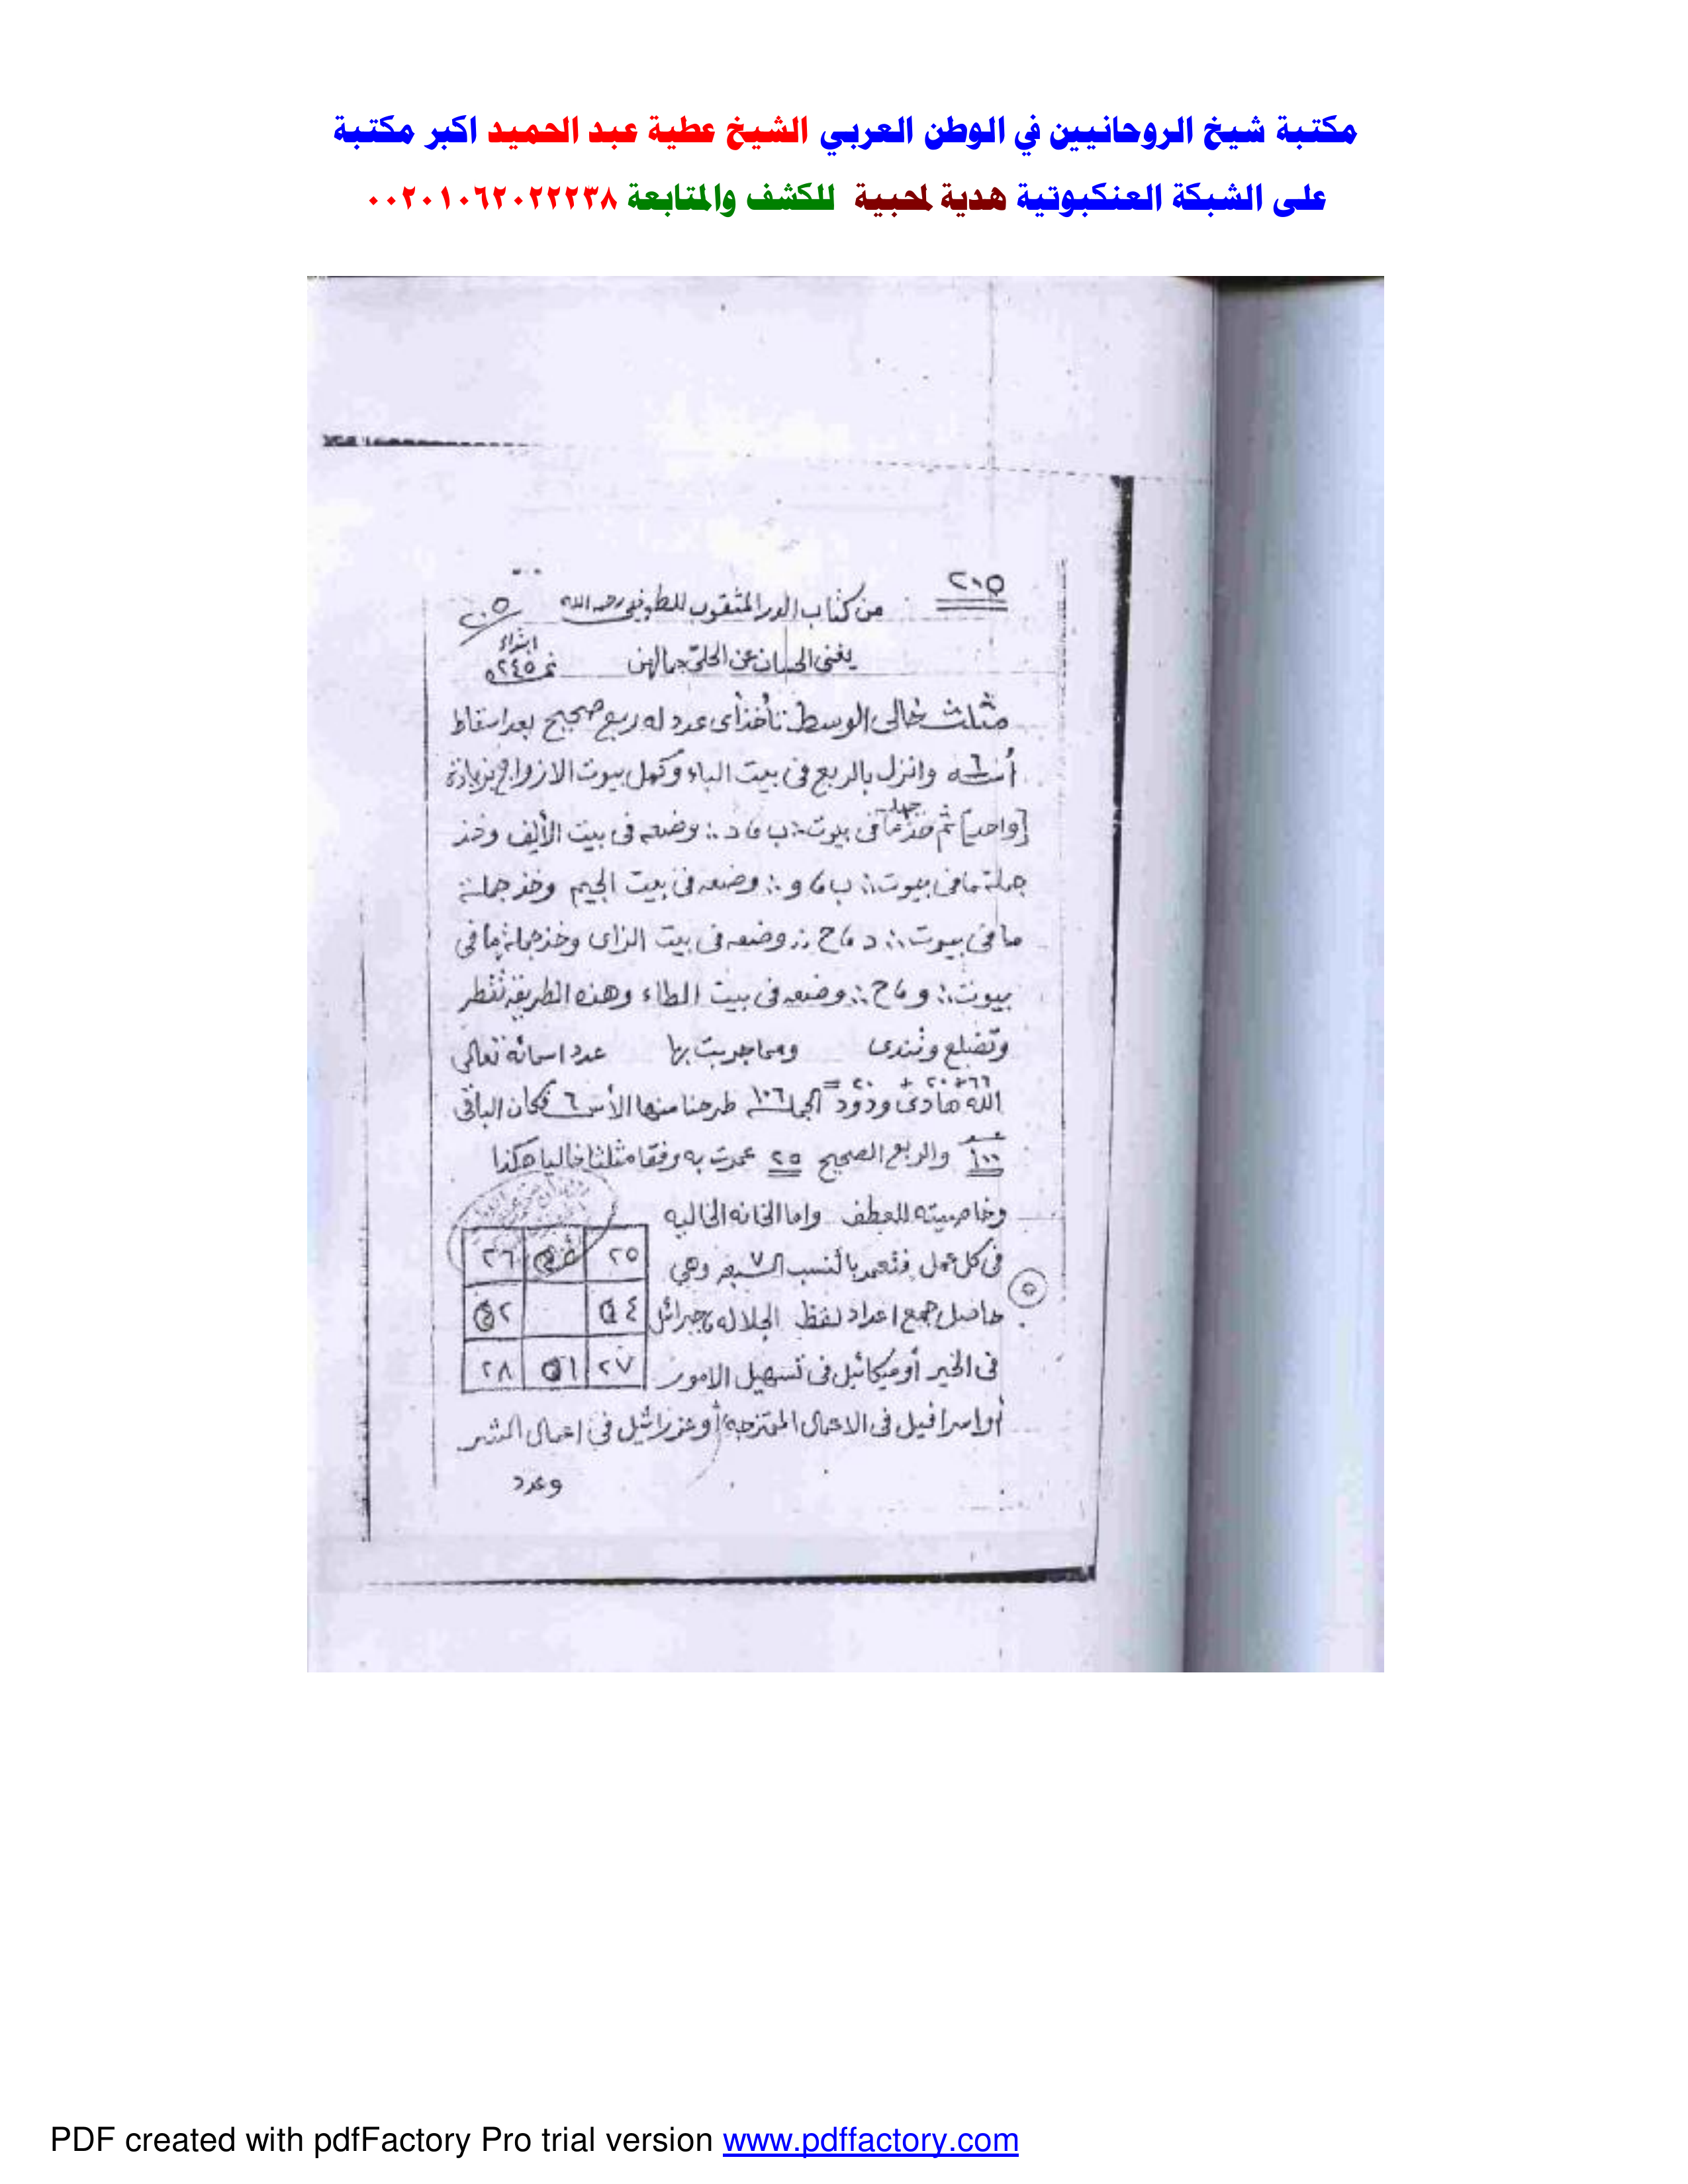 مكتبة شيخ الروحانيين في الوطن العربي الشيخ عطية عبد الحميد اكبر مكتبة
على الشبكة العنكبوتية هدية لمحبية للكشف والمتابعة ٠٠٢٠١٠٦٢٠٢٢٢٣٨
٢٠٥ من كتاب الدر المثقوب للطوخى رحمه الله ٢٠٥
يغنى الحسان عن الحلى جمالهن ابتداء
مثلث خالى الوسط تأخذ أى عدد له ربع صحيح بعد اسقاط
أسه ٦ وانزل بالربع فى بيت الباء وكمل بيوت الازواج بزيادة
[واحد] ثم خذ جملة ما فى بيوت ∴ ب ، د ∴ وضعه فى بيت الألف وخذ
جملة ما فى بيوت ∴ ب ، و ∴ وضعه فى بيت الجيم وخذ جملة
ما فى بيوت ∴ د ، ح ∴ وضعه فى بيت الزاى وخذ جملة ما فى
بيوت ∴ و ، ح ∴ وضعه فى بيت الطاء وهذه الطريقة تقطر
وتضلع وتبتدى ومما جربت بها عدد اسمائه تعالى
٦٦ + ٢٠ + ٢٠ =
الله هادى ودود الجملة ١٠٦ طرحنا منها الأس ٦ فكان الباقى
١٠٠ والربع الصحيح ٢٥ عمرت به وفقا مثلثا خاليا هكذا
وخاصيته للعطف واما الخانه الخاليه
فى كل عمل فتعمر بالنسب السبعة ٧ وهى
حاصل جمع اعداد لفظ الجلاله ، جبرائل
فى الخير أو ميكائيل فى تسهيل الامور
أو اسرافيل فى الاعمال الممتزجه أو عزرائيل فى اعمال الشر
وعدد
٢٥ ٢٦
٥٤ ٥٢
٢٧ ٥١ ٢٨
PDF created with pdfFactory Pro trial version www.pdffactory.com